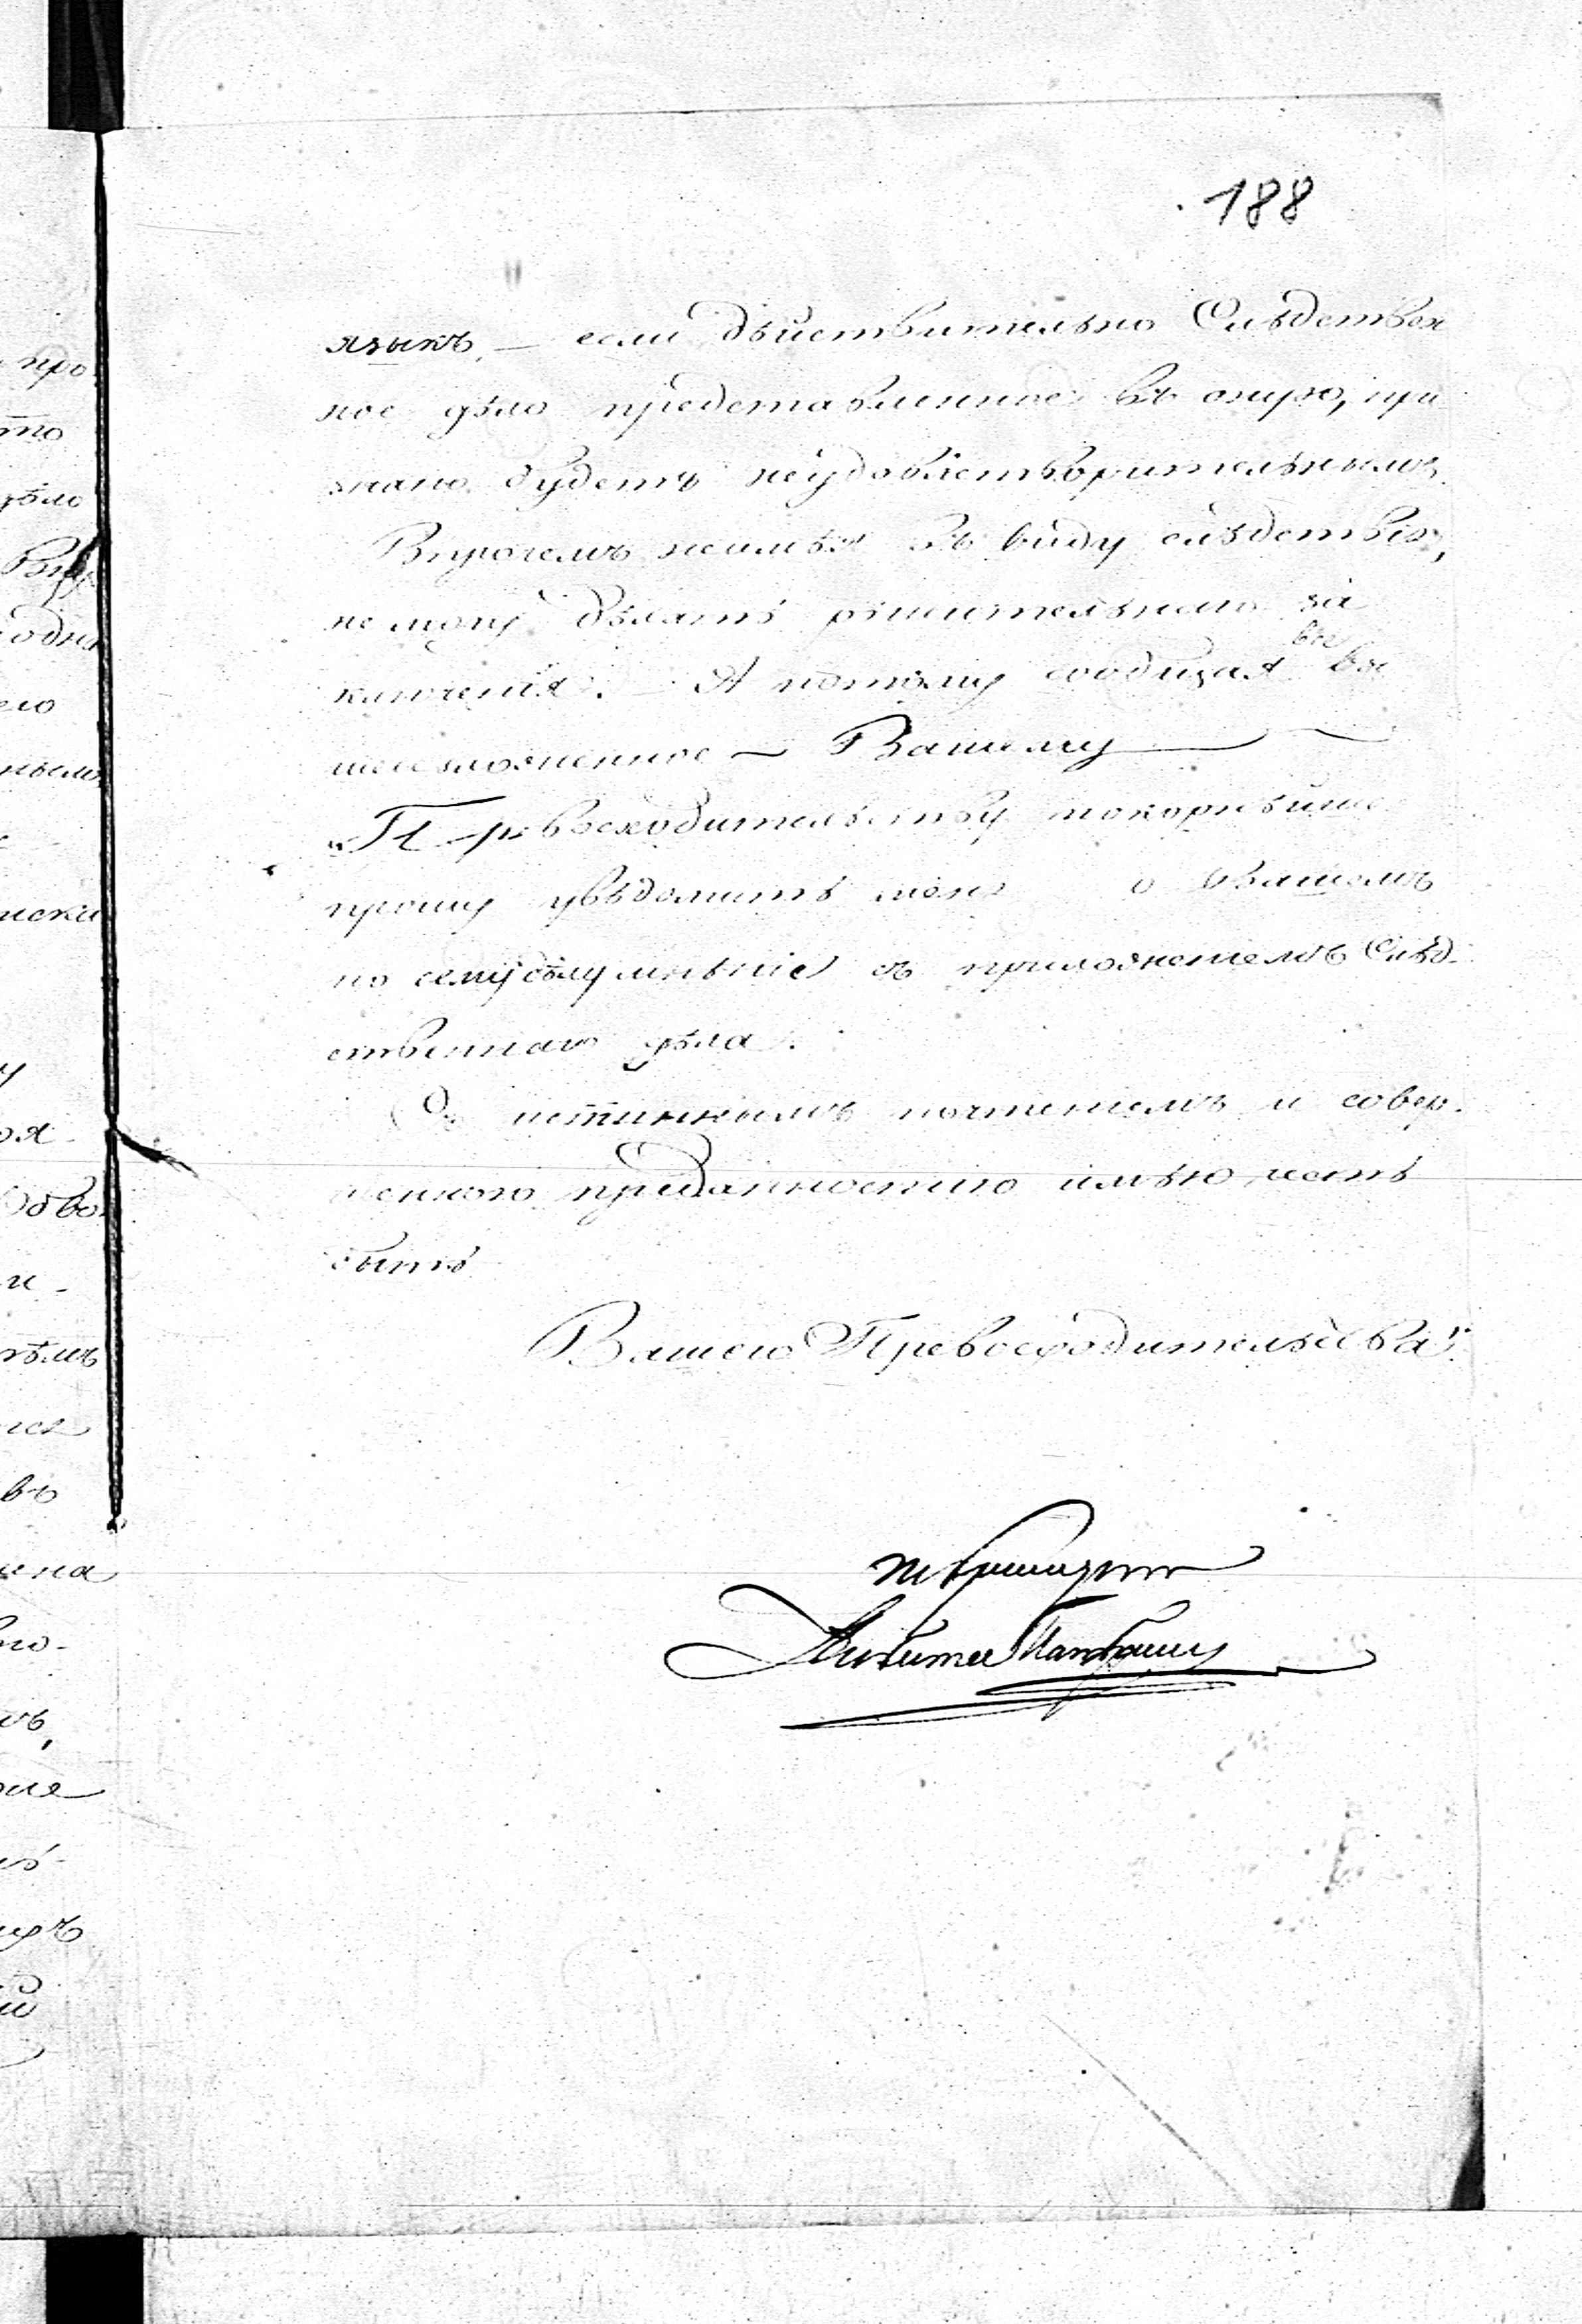 188
языкъ, — если дѣйствительно Слѣдствен
ное дѣло представленное въ оную, при
знано будетъ неудовлетворительнымъ.
Впрочемъ неимѣя въ виду слѣдствія,
не могу дѣлать рѣшительнаго за
ключенія. — А потому сообщая все вы
шеизложенное — Вашему
Превосходительству покорнѣйше
прошу увѣдомить меня о Вашемъ
по сему дѣлу мнѣніе съ приложеніемъ Слѣд-
ственнаго дѣла.
Съ истиннымъ почтеніемъ и совер-
шенною преданностію имѣю честь
быть
Вашего Превосходительства
Никита
про
то
дѣло
одна
его
нымъ
иски
у
въ